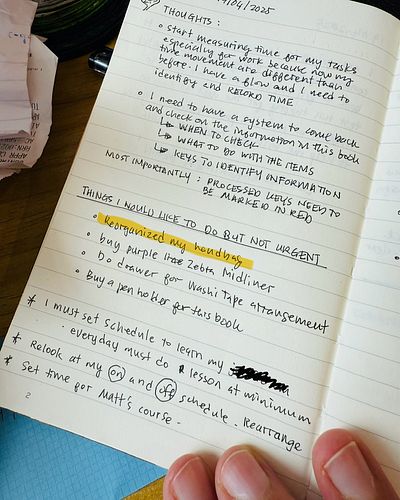 /04/2025
THOUGHTS:
• start measuring time for my tasks
especially for work because now my
time movement are different than
before. I have a flow and I need to
identify and RECORD TIME
• I need to have a system to come back
and check on the information in this book
↳ WHEN TO CHECK
↳ WHAT TO DO WITH THE ITEMS
↳ KEYS TO IDENTIFY INFORMATION
MOST IMPORTANTLY : PROCESSED KEYS NEED TO
BE MARKED IN RED
THINGS I WOULD LIKE TO DO BUT NOT URGENT
• Reorganized my handbag
• buy purple Zebra Midliner
• Do drawer for Washi Tape arrangement
• Buy a pen holder for this book
* I must set schedule to learn my
. everyday must do lesson at minimum
* Relook at my on and off schedule. Rearrange
* Set time for Matt's course.
2